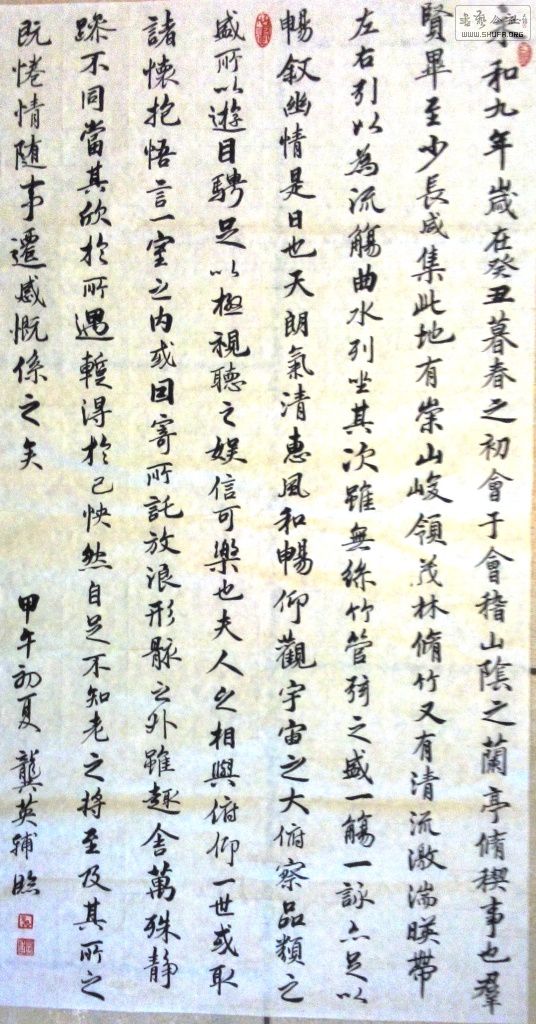 永和九年歲在癸丑暮春之初會于會稽山陰之蘭亭脩稧事也羣
賢畢至少長咸集此地有崇山峻領茂林脩竹又有清流激湍暎帶
左右引以為流觴曲水列坐其次雖無絲竹管弦之盛一觴一詠亦足以
暢叙幽情是日也天朗氣清惠風和暢仰觀宇宙之大俯察品類之
盛所以遊目騁足以極視聽之娛信可樂也夫人之相與俯仰一世或取
諸懷抱悟言一室之内或因寄所託放浪形骸之外雖趣舍萬殊静
躁不同當其欣於所遇暫得於己怏然自足不知老之將至及其所之
既惓情随事遷感慨係之矣
甲午初夏 龔英輔臨
WWW.SHUFA.ORG